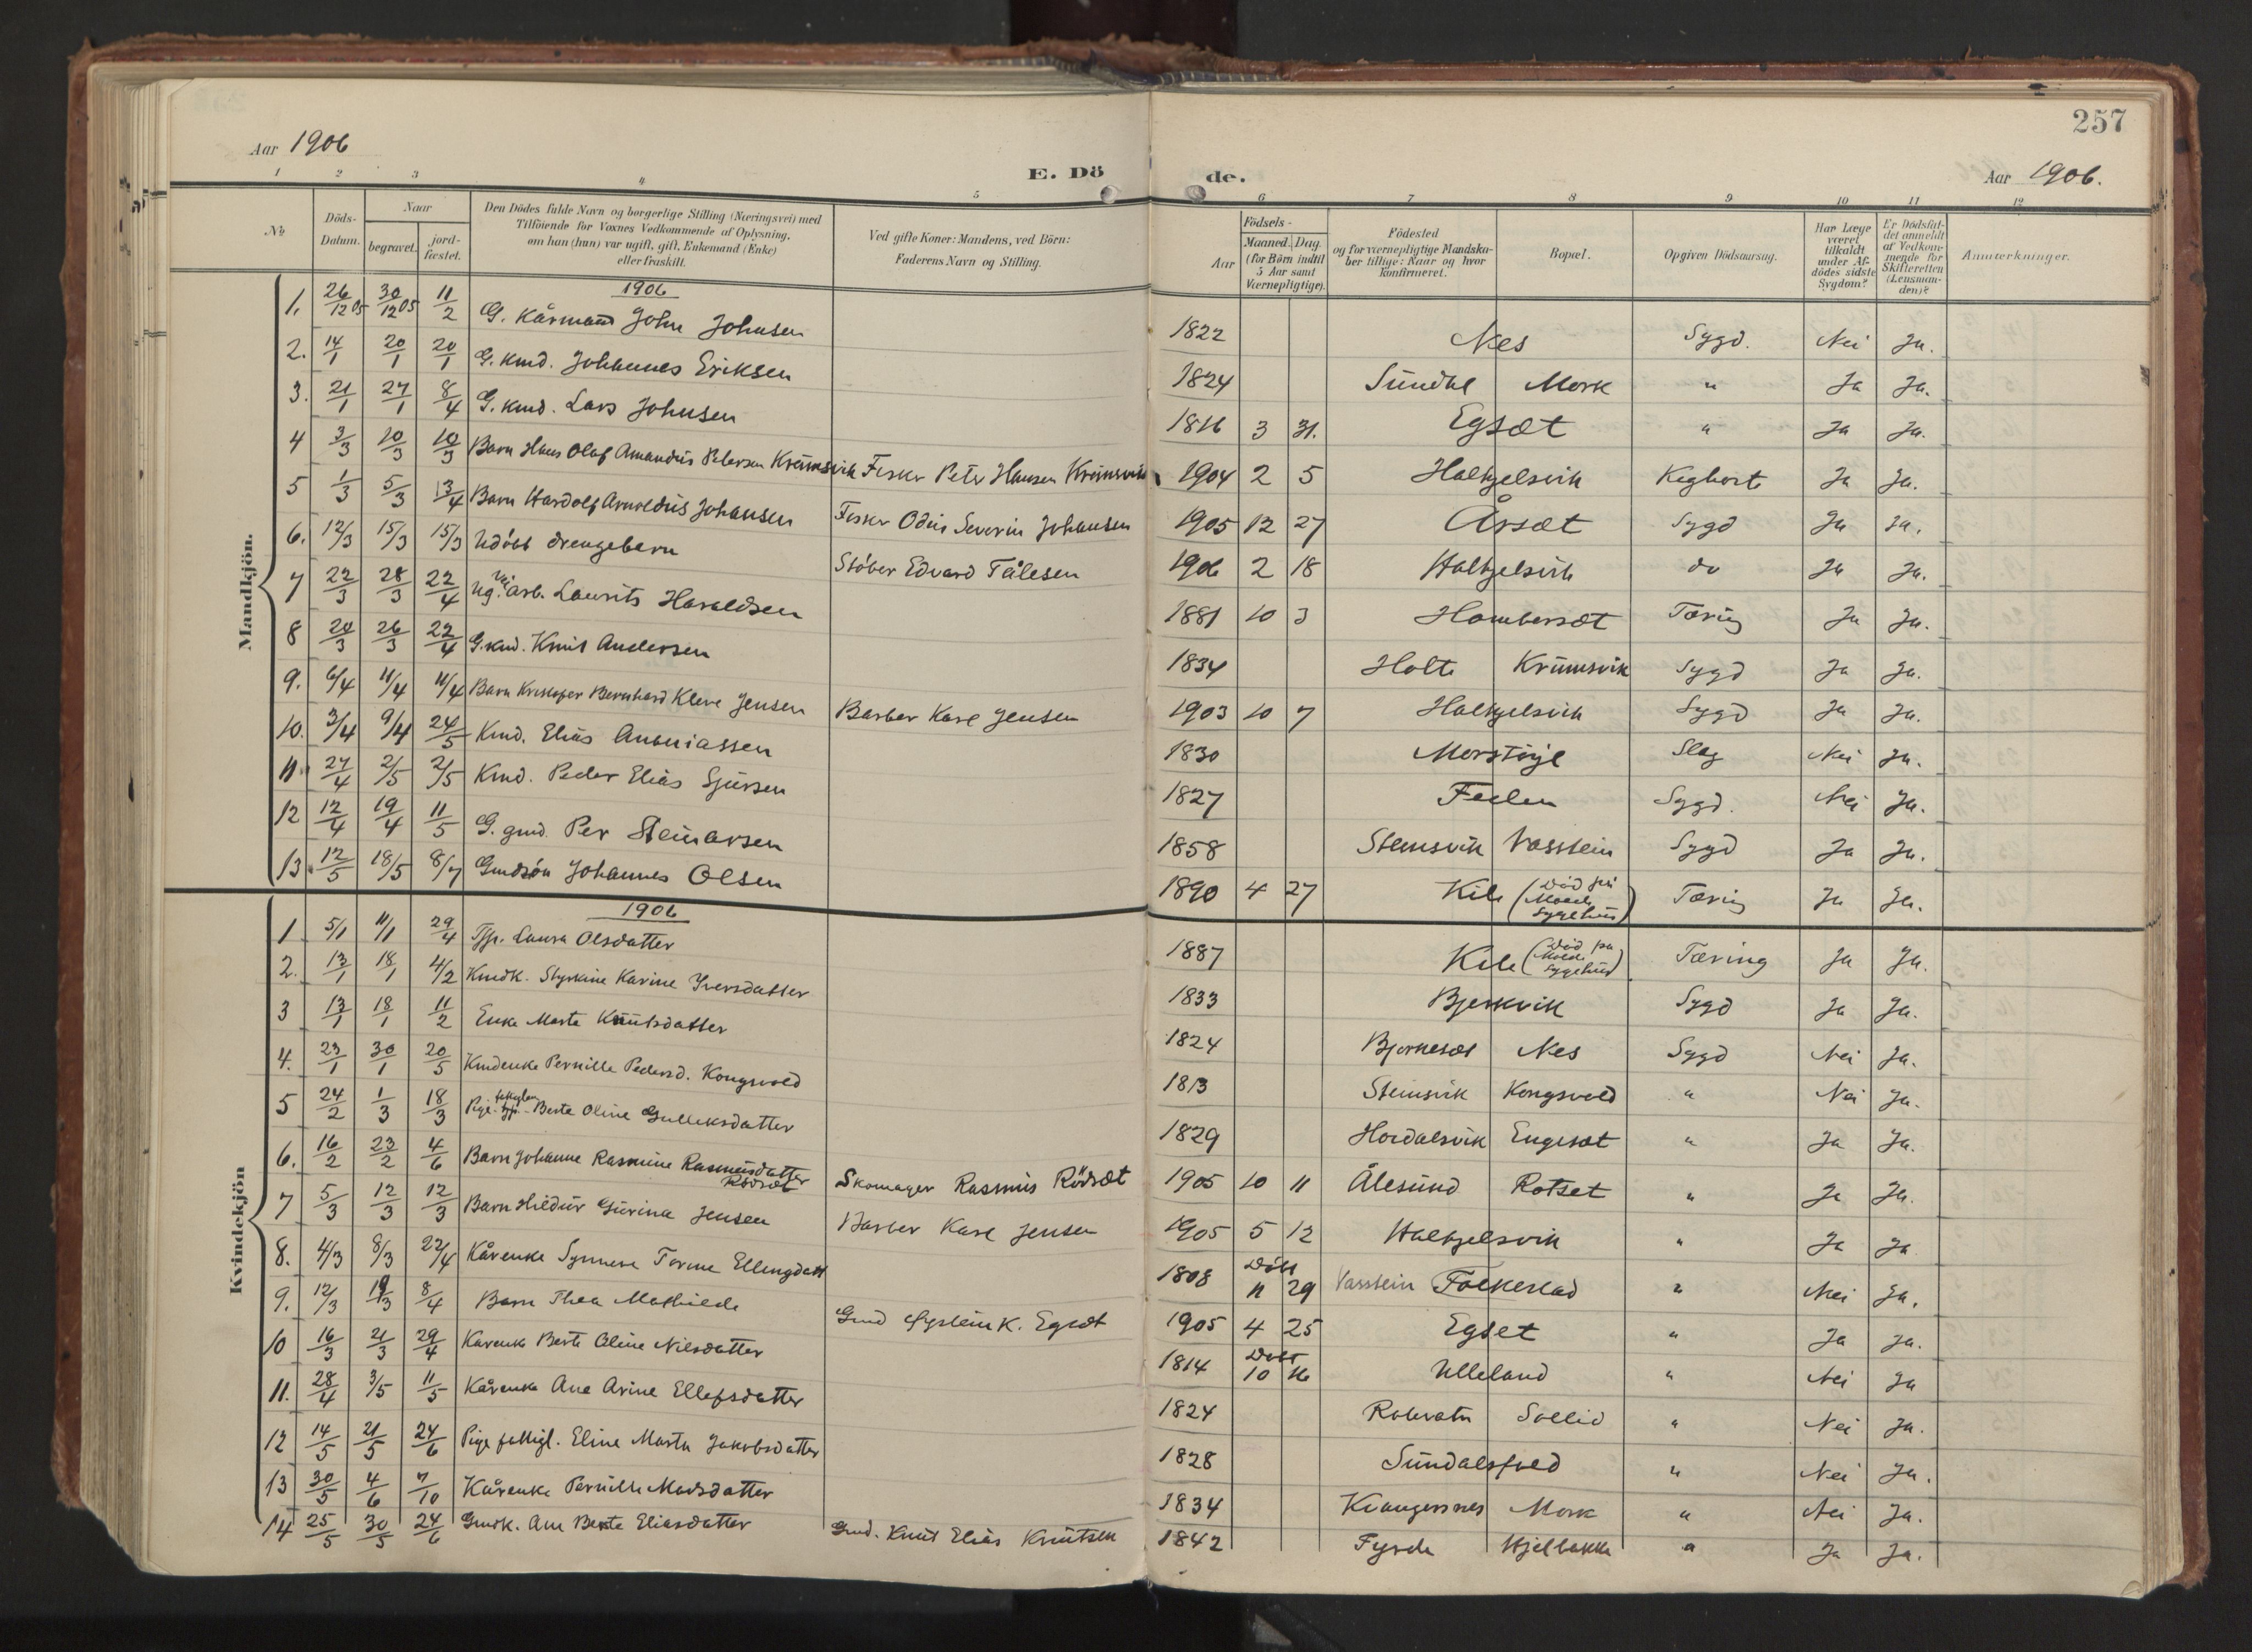 257
Aar 1906
E. Dö de.
Aar 1906.
1 2 3 4 5 6 7 8 9 10 11 12
No
Döds-Datum.
Naar
begravet.
jord-fæstet.
Den Dödes fulde Navn og borgerlige Stilling (Næringsvei) med
Tilföiende for Voxnes Vedkommende af Oplysning,
om han (hun) var ugift, gift, Enkemand (Enke)
eller fraskilt.
Ved gifte Koner: Mandens, ved Börn:
Faderens Navn og Stilling.
Födsels-
Aar
Maaned. Dag
(for Börn indtil
5 Aar samt
Værnepligtige).
Födested
og for værnepligtige Mandska-
ber tillige: Naar og hvor
konfirmeret.
Bopæl.
Opgiven Dödsaarsag.
Har Læge
været
tilkaldt
under Af-
dödes sidste
Sygdom?
Er Dödsfal-
det anmeldt
af Vedkom-
mende for
Skifteretten
(Lensman-
den)?
Anmærkninger.
Mandkjön.
1906
1. 26/12 05 30/12 05 11/2 G. Kårmand John Johnsen 1822 Nes Sygd. Nei Ja.
2. 14/1 20/1 20/1 G. kmd. Johannes Eriksen 1824 Sündal Mork " Ja Ja.
3. 21/1 27/1 8/4 G. kmd. Lars Johnsen 1816 3 31. Egsæt " Ja Ja.
4 3/3 10/3 10/3 Barn Hans Olaf Amandus Petersen Krümsvik Fisker Peter Hansen Krümsvik 1904 2 5 Halkjelsvik Kighoste Ja Ja.
5 1/3 5/3 13/4 Barn Hardolf Arnoldüs Johansen Fisker Odin Severin Johansen 1905 12 27 Årsæt Sygd Ja Ja.
6. 12/3 15/3 15/3 Udöbt drengebarn Stöber Edvard Tålesen 1906 2 18 Halkjelsvik do Ja Ja.
7 22/3 28/3 22/4 Ug. arb. Laurits Haraldsen 1881 10 3 Hambersæt Tæring Ja Ja.
8 20/3 26/3 22/4 G. kmd. Knüt Andersen 1834 Holte Krümsvik Sygd Ja Ja.
9. 6/4 11/4 11/4 Barn Kristofer Bernhard Kleve Jensen Barber Karl Jensen 1903 10 7 Halkjelsvik Sygd Ja Ja.
10. 3/4 9/4 24/5 Kmd. Elias Ananiassen 1830 Morstöyl Slag Nei Ja.
11 27/4 2/5 2/5 Kmd. Peder Elias Sjürsen 1827 Fedlen Sygd. Nei Ja.
12 12/4 19/4 11/5 G. gmd. Per Steinarsen 1858 Steinsvik Vasstein Sygd Ja Ja.
13 12/5 18/5 8/7 Gmdsön Johannes Olsen 1890 4 27 Kile (Död på Molde Sygehüs) Tæring Ja Ja.
Kvindekjön
1906
1 5/1 11/1 29/4 Tjp. Laura Olsdatter 1887 Kile (Död på Molde Sygehüs) Tæring Ja Ja.
2. 13/1 18/1 4/2 Kmdk. Styrkine Karine Iversdatter 1833 Bjerkvik Sygd Ja Ja.
3 13/1 18/1 11/2 Enke Marte Knütsdatter 1824 Bjørnesæt Nes Sygd Nei Ja.
4. 23/1 30/1 20/5 Kmdenke Pernille Pedersd. Kongsvold 1813 Steinsvik Kongsvold " Nei Ja.
5 24/2 1/3 18/3 Pige Berte Oline Gulleksdatter 1829 Hordalsvik Engeset " Ja Ja.
6. 16/2 23/2 4/6 Barn Johanne Rasmine Rasmüsdatter Rödsæt Skomager Rasmüs Rödsæt 1905 10 11 Ålesünd Rotset " Ja Ja.
7 5/3 12/3 12/3 Barn Hildür Gürine Jensen Barber Karl Jensen 1905 5 12 Halkjelsvik " Ja Ja
8. 4/3 8/3 22/4 Kårenke Synneve Torine Ellingdatt 1808 Döbt 11 29 Vasstein Folkestad " Nei Ja.
9. 12/3 19/3 8/4 Barn Thea Mathilde Gmd Eystein K. Egset 1905 4 25 Egset " Ja Ja.
10 16/3 21/3 29/4 Kårenke Berte Oline Nilsdatter 1814 Döbt 10 16 Ulleland " Nei Ja
11. 28/4 3/5 11/5 Kårenke Ane Arine Ellefsdatter 1824 Rotevatn Sollid " Nei Ja.
12 14/5 21/5 24/6 Pige fattigl. Eline Marta Jakobsdatter 1828 Sündalsfved " Nei Ja.
13 30/5 4/6 7/10 Kårenke Pernille Madsdatter 1834 Kvangersnes Mork " Nei Ja.
14 25/5 30/5 24/6 Gmdk. Ane Berte Eliasdatter Gmd. Knüt Elias Knütsen 1842 Fyrde Hjelbakke " Ja Ja.